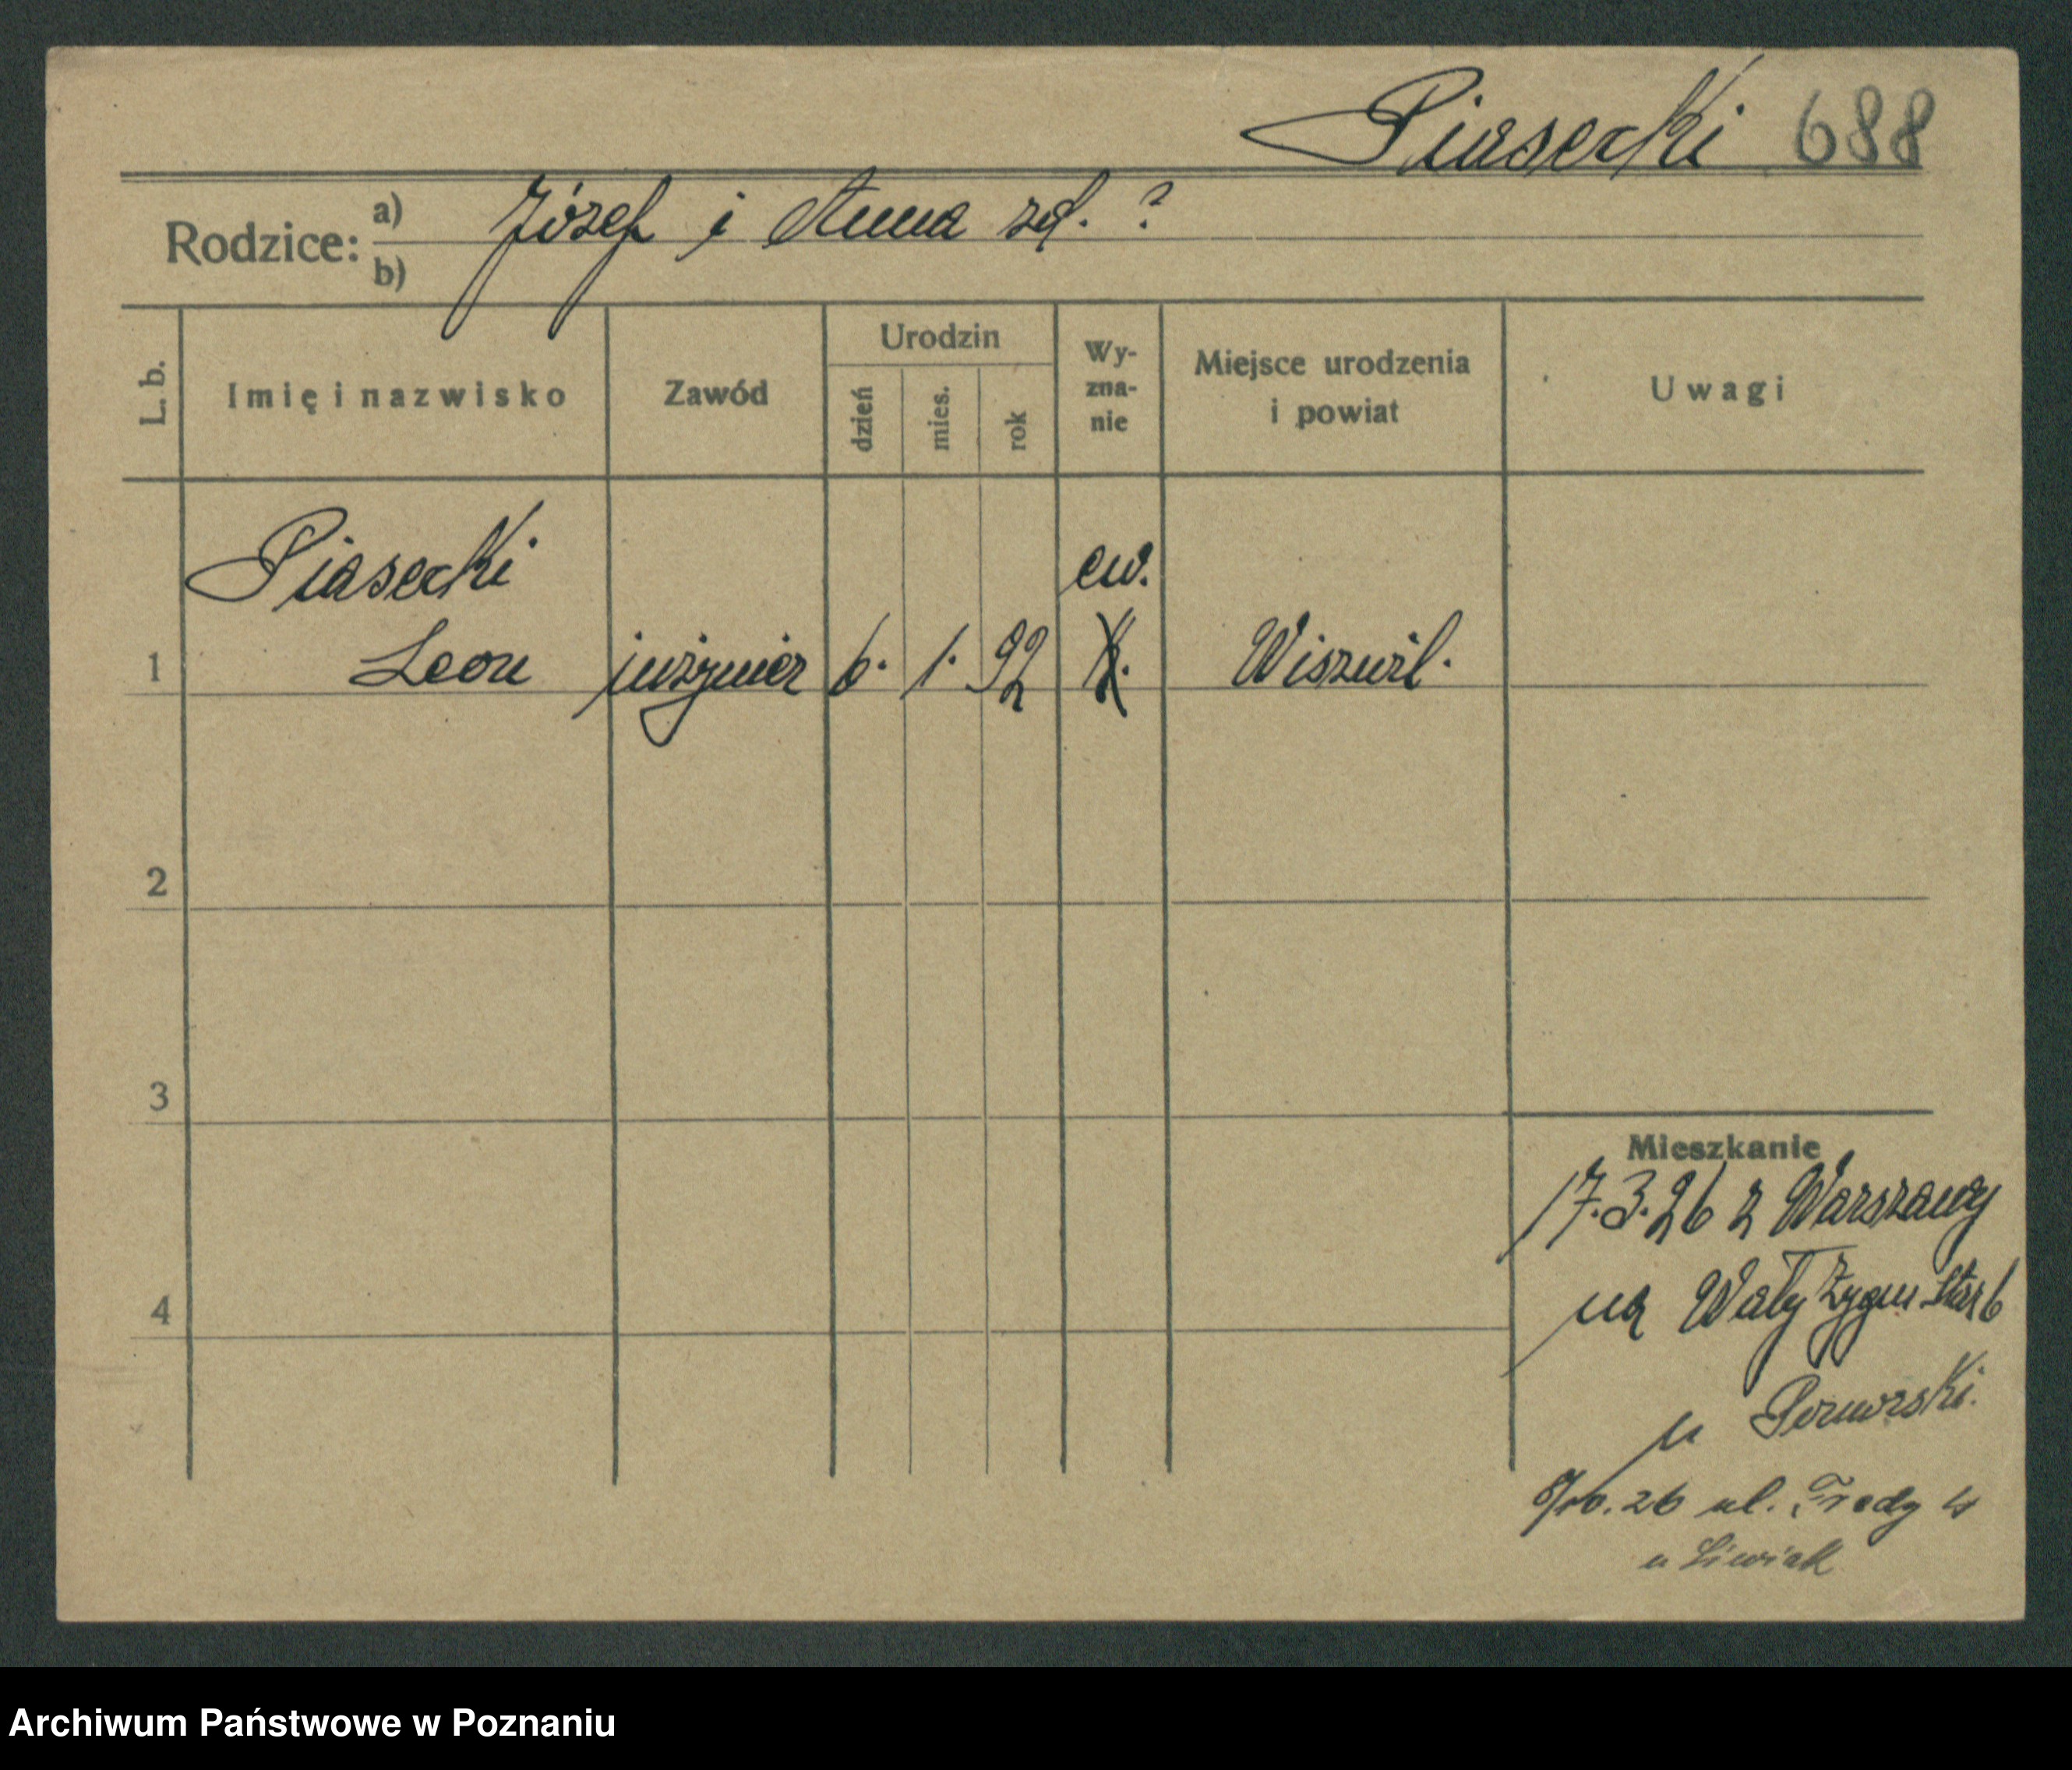 Piasecki 688
Rodzice: a) Józef i Anna zd. ?
b)
L. b. Imię i nazwisko Zawód Urodzin dzień mies. rok Wyznanie Miejsce urodzenia i powiat Uwagi
Piasecki ew.
1 Leon inżynier 6. 1. 92 K. Wiszwil.
2
3
Mieszkanie
17.3.26 z Warszawy
4
na Wały Zygm Star 6
u
26 ul. Fredry 4
u Liwiak
Archiwum Państwowe w Poznaniu